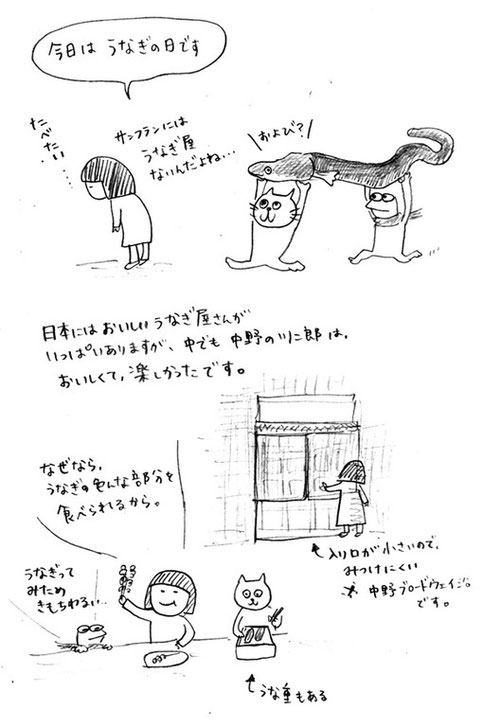 今日は うなぎの日です
たべたい....
サンフランには
うなぎ屋
ないんだよね...
および?
日本にはおいしいうなぎ屋さんが
いっぱいありますが、中でも 中野の川二郎は、
おいしくて、楽しかったです。
なぜなら、
うなぎの色んな部分を
食べられるから。
入り口が小さいので、
みつけにくい
中野ブロードウェイジ。
です。
うなぎって
みため
きもちわるい...
うな重もある